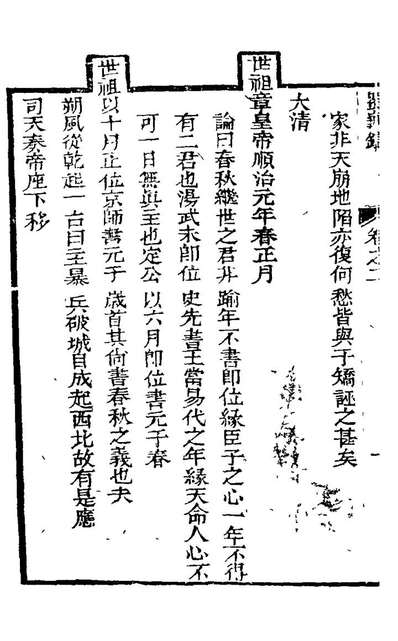 卷之二
家非天崩地陷亦復何愁皆與子矯誣之甚矣
大清
世祖章皇帝順治元年春正月
論曰春秋繼世之君非踰年不書即位緣臣子之心一年不得
有二君也湯武未即位史先書王當易代之年緣天命人心不
可一日無真主也定公以六月即位書元于春
世祖以十月正位京師書元于歲首其尚書春秋之義也夫
朔風從乾起一占曰主暴兵破城自成起西北故有是應
司天奏帝座下移